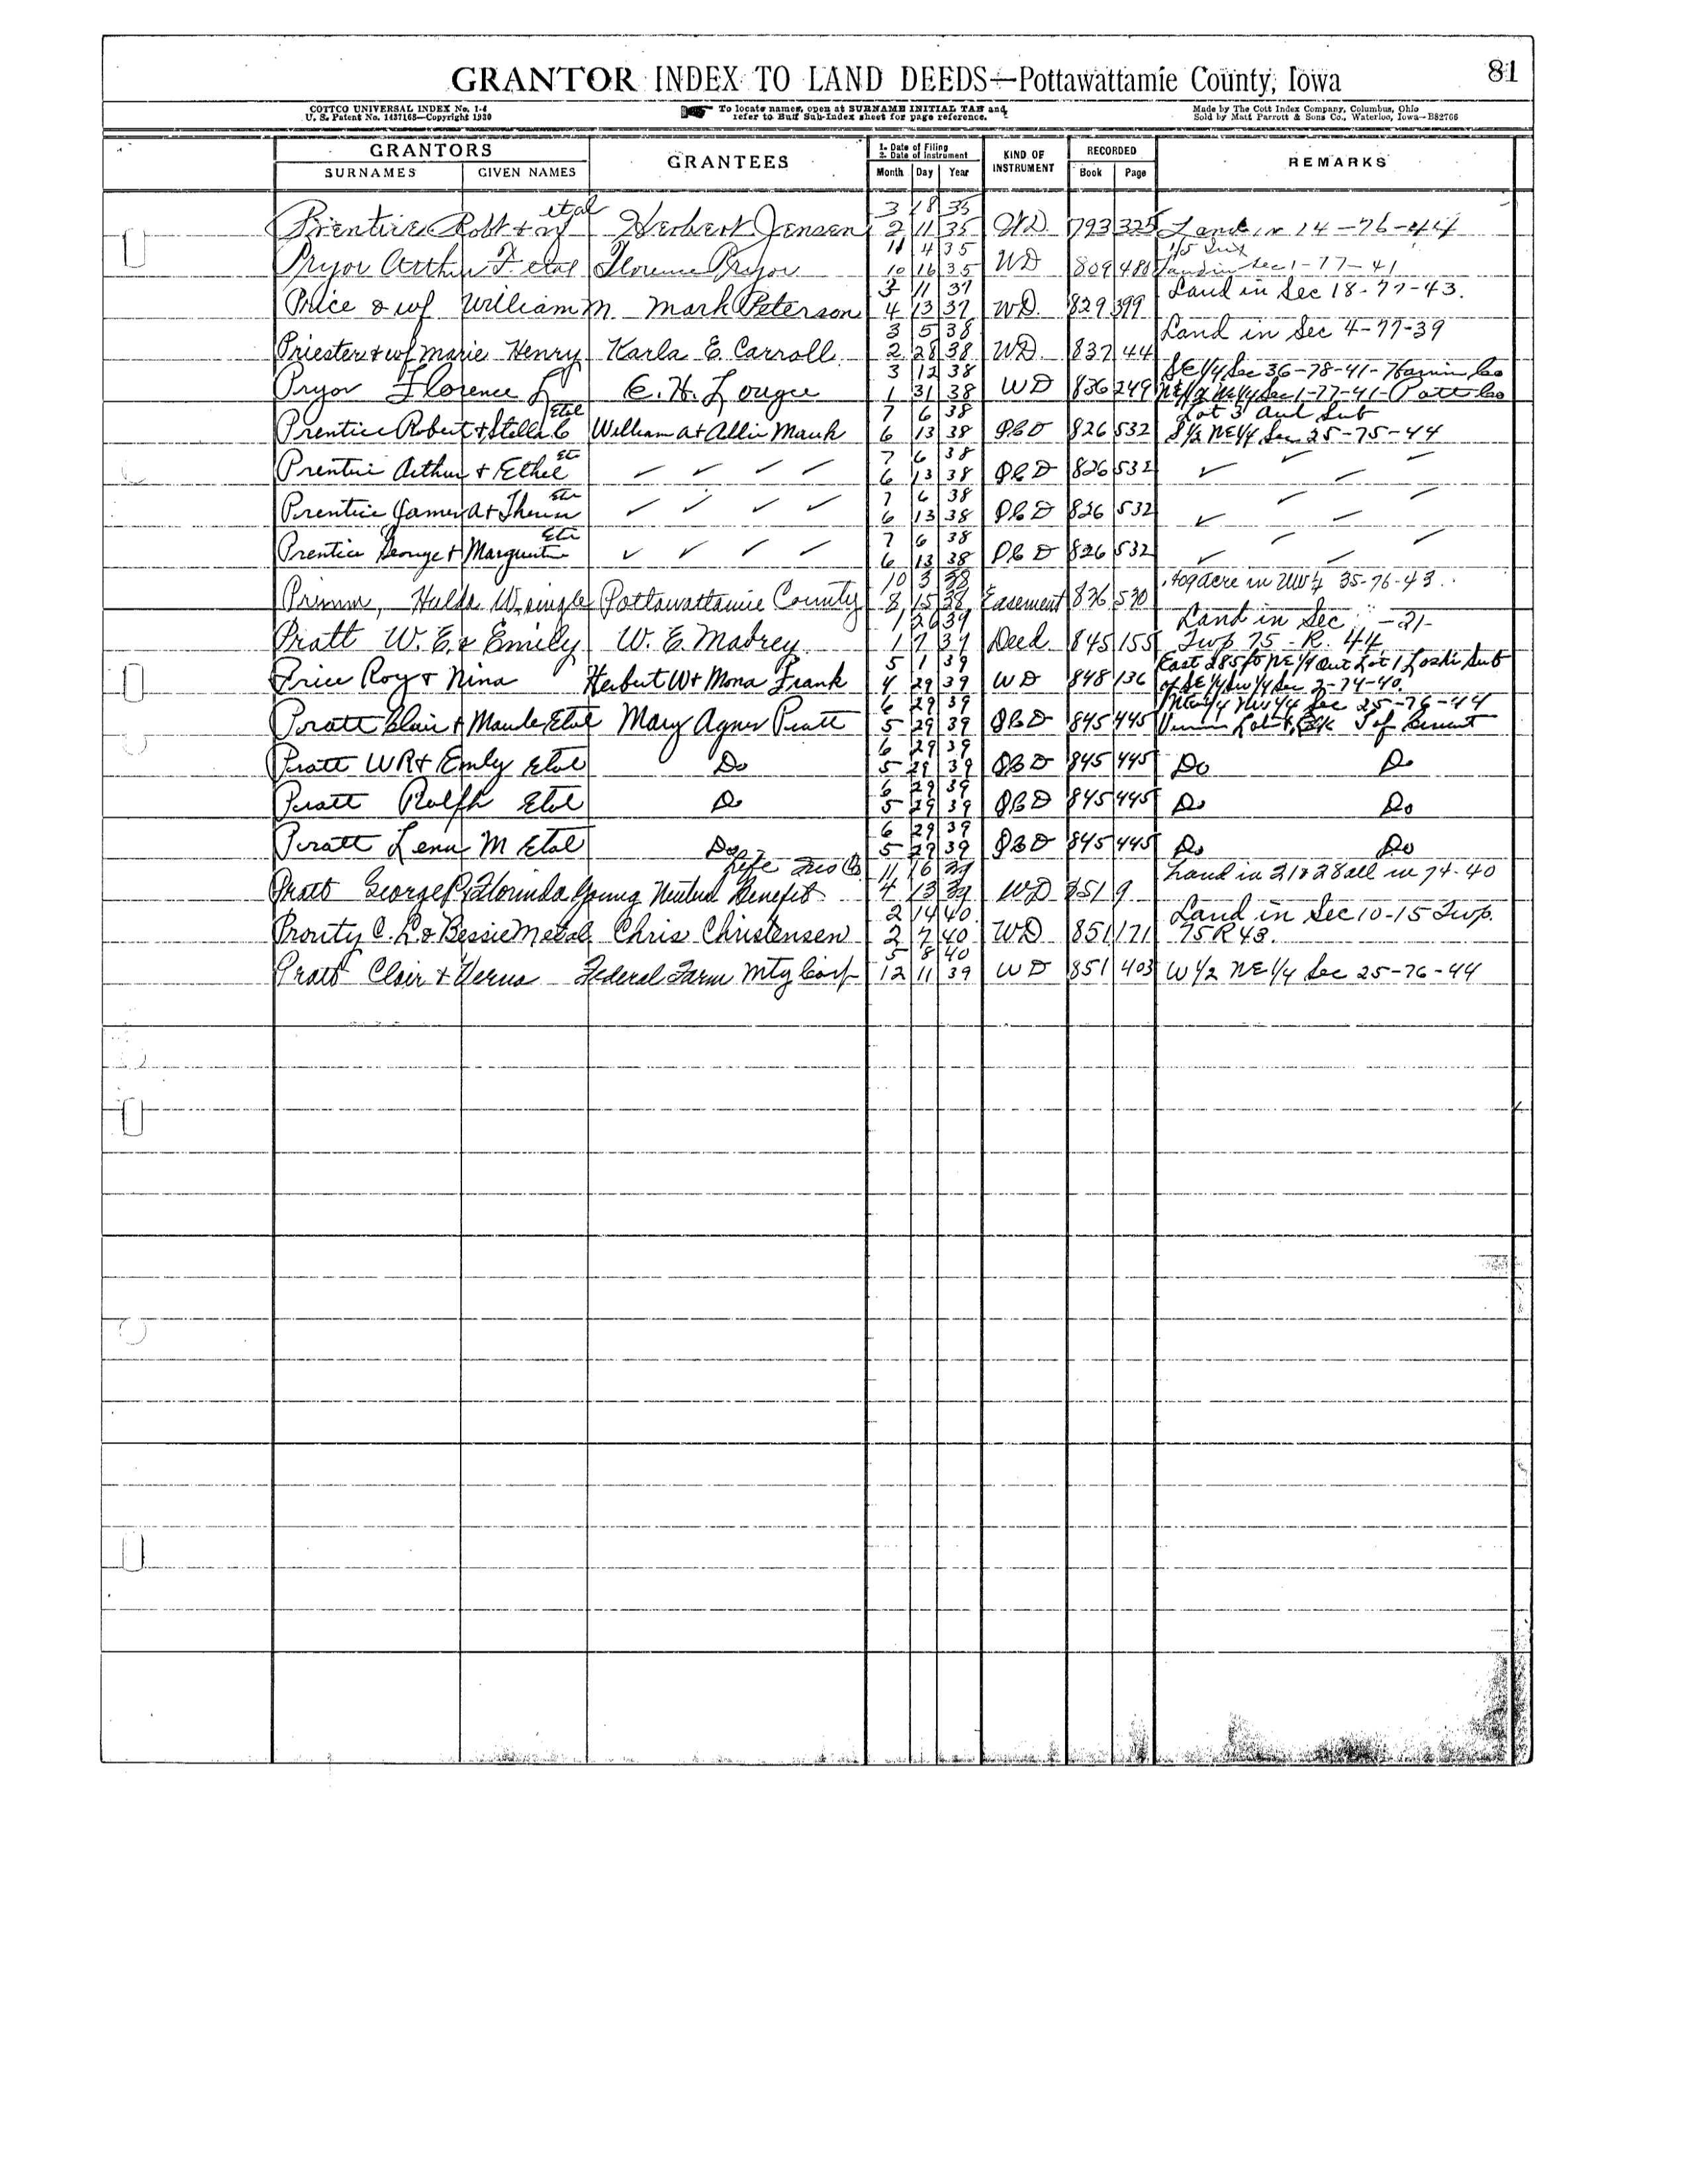 81
GRANTOR INDEX TO LAND DEEDS—Pottawattamie County, Iowa
COTTCO UNIVERSAL INDEX No. 1-4
U. S. Patent No. 1437168—Copyright 1930
To locate names, open at SURNAME INITIAL TAB and
refer to Buff Sub-Index sheet for page reference.
Made by The Cott Index Company, Columbus, Ohio
Sold by Matt Parrott & Sons Co., Waterloo, Iowa—B82766
GRANTORS GRANTEES 1. Date of Filing 2. Date of Instrument KIND OF INSTRUMENT RECORDED REMARKS
SURNAMES GIVEN NAMES Month Day Year Book Page
etal 3 18 35
Prentice Robt + wf Herbert Jensen 2 11 35 WD 793 325 Land in 14-76-44
11 4 35 1/5 Int
Pryor Arthur F. etal Florence Pryor 10 16 35 WD 809 480 Land in Sec 1-77-41
3 11 37 Land in Sec 18-77-43.
Price & wf William M. Mark Peterson 4 13 37 WD. 829 399
3 5 38 Land in Sec 4-77-39
Priester & wf Marie Henry Karla E. Carroll 2 28 38 WD 837 44
3 12 38 SE 1/4 Sec 36-78-41-Harrison Co
Pryor Florence L E. H. Lougee 1 31 38 WD 836 249 NE 1/4 Sec 1-77-41-Patt Co
Etal 7 6 38 Lot 3 Aud Sub
Prentice Robert + Stella C William A + Allie Mauk 6 13 38 QCD 826 532 S 1/2 NE 1/4 Sec 25-75-44
7 6 38
Prentice Arthur + Ethel ✓ ✓ ✓ ✓ 6 13 38 QCD 826 532 ✓ ✓ ✓
7 6 38
Prentice James A + ✓ ✓ ✓ ✓ 6 13 38 QCD 826 532 ✓ ✓ ✓
7 6 38
Prentice George + ✓ ✓ ✓ ✓ 6 13 38 QCD 826 532 ✓ ✓ ✓
10 3 38 acre in NW 1/4 35-76-43
Primm, Hulda W, single Pottawattamie County 8 15 38 Easement 836 570
1 26 39 Land in Sec -21-
Pratt W. E. & Emily W. E. Madrey 1 7 39 Deed 845 155 Twp 75 - R. 44
5 1 39 East 285 ft NE 1/4 Out Lot 1 Sub
Price Roy + Nina Herbert W + Mona Frank 4 29 39 WD 848 136 of SE 1/4 SW 1/4 Sec 2-74-40.
6 29 39 NE 1/4 NW 1/4 Sec 25-76-44
Pratt Clair + Maude Etal Mary Agnes Pratt 5 29 39 QCD 845 445
6 29 39
Pratt WR + Emily Etal Do 5 29 39 QCD 845 445 Do Do
6 29 39
Pratt Ralph Etal Do 5 29 39 QCD 845 445 Do Do
6 29 39
Pratt Lena M Etal Do 5 29 39 QCD 845 445 Do Do
Life Ins Co. 11 16 39 Land in 21 & 28 all in 74-40
Pratt George P, Florinda Young Mutual Benefit 4 13 39 WD 851 9
2 14 40 Land in Sec 10-15 Twp.
Prouty C. L. & Bessie M etal Chris Christensen 2 7 40 WD 851 171 75 R 43.
5 8 40
Pratt Clair + Verna Federal Farm Mtg Corp 12 11 39 WD 851 403 W 1/2 NE 1/4 Sec 25-76-44